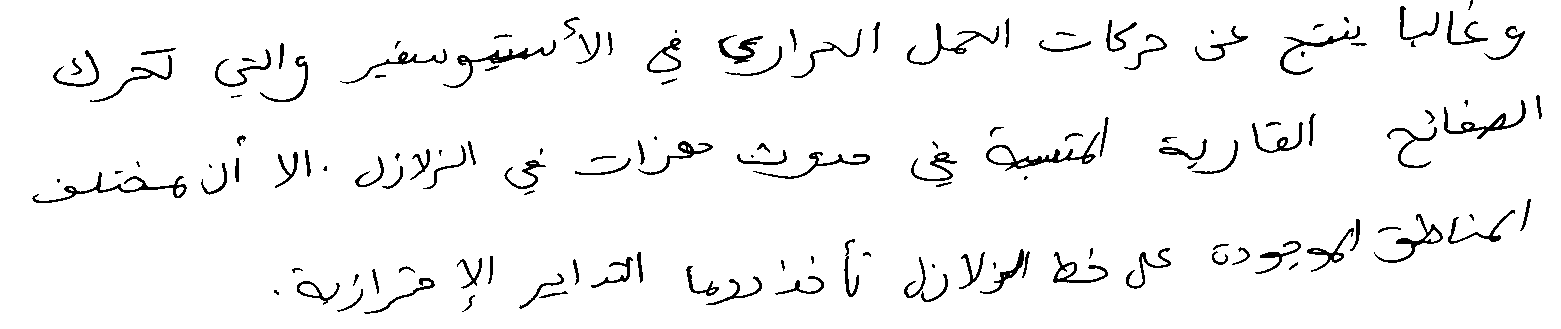 وغالبا ينتج عن حركات الحمل الحراري في الأستيوسفير والتي تحرك
الصفائح القارية المتسببة في حدوث هزات في الزلازل . الا أن مختلف
المناطق الموجودة على خط الزلازل تأخذ دوما التدابير الإحترازية .